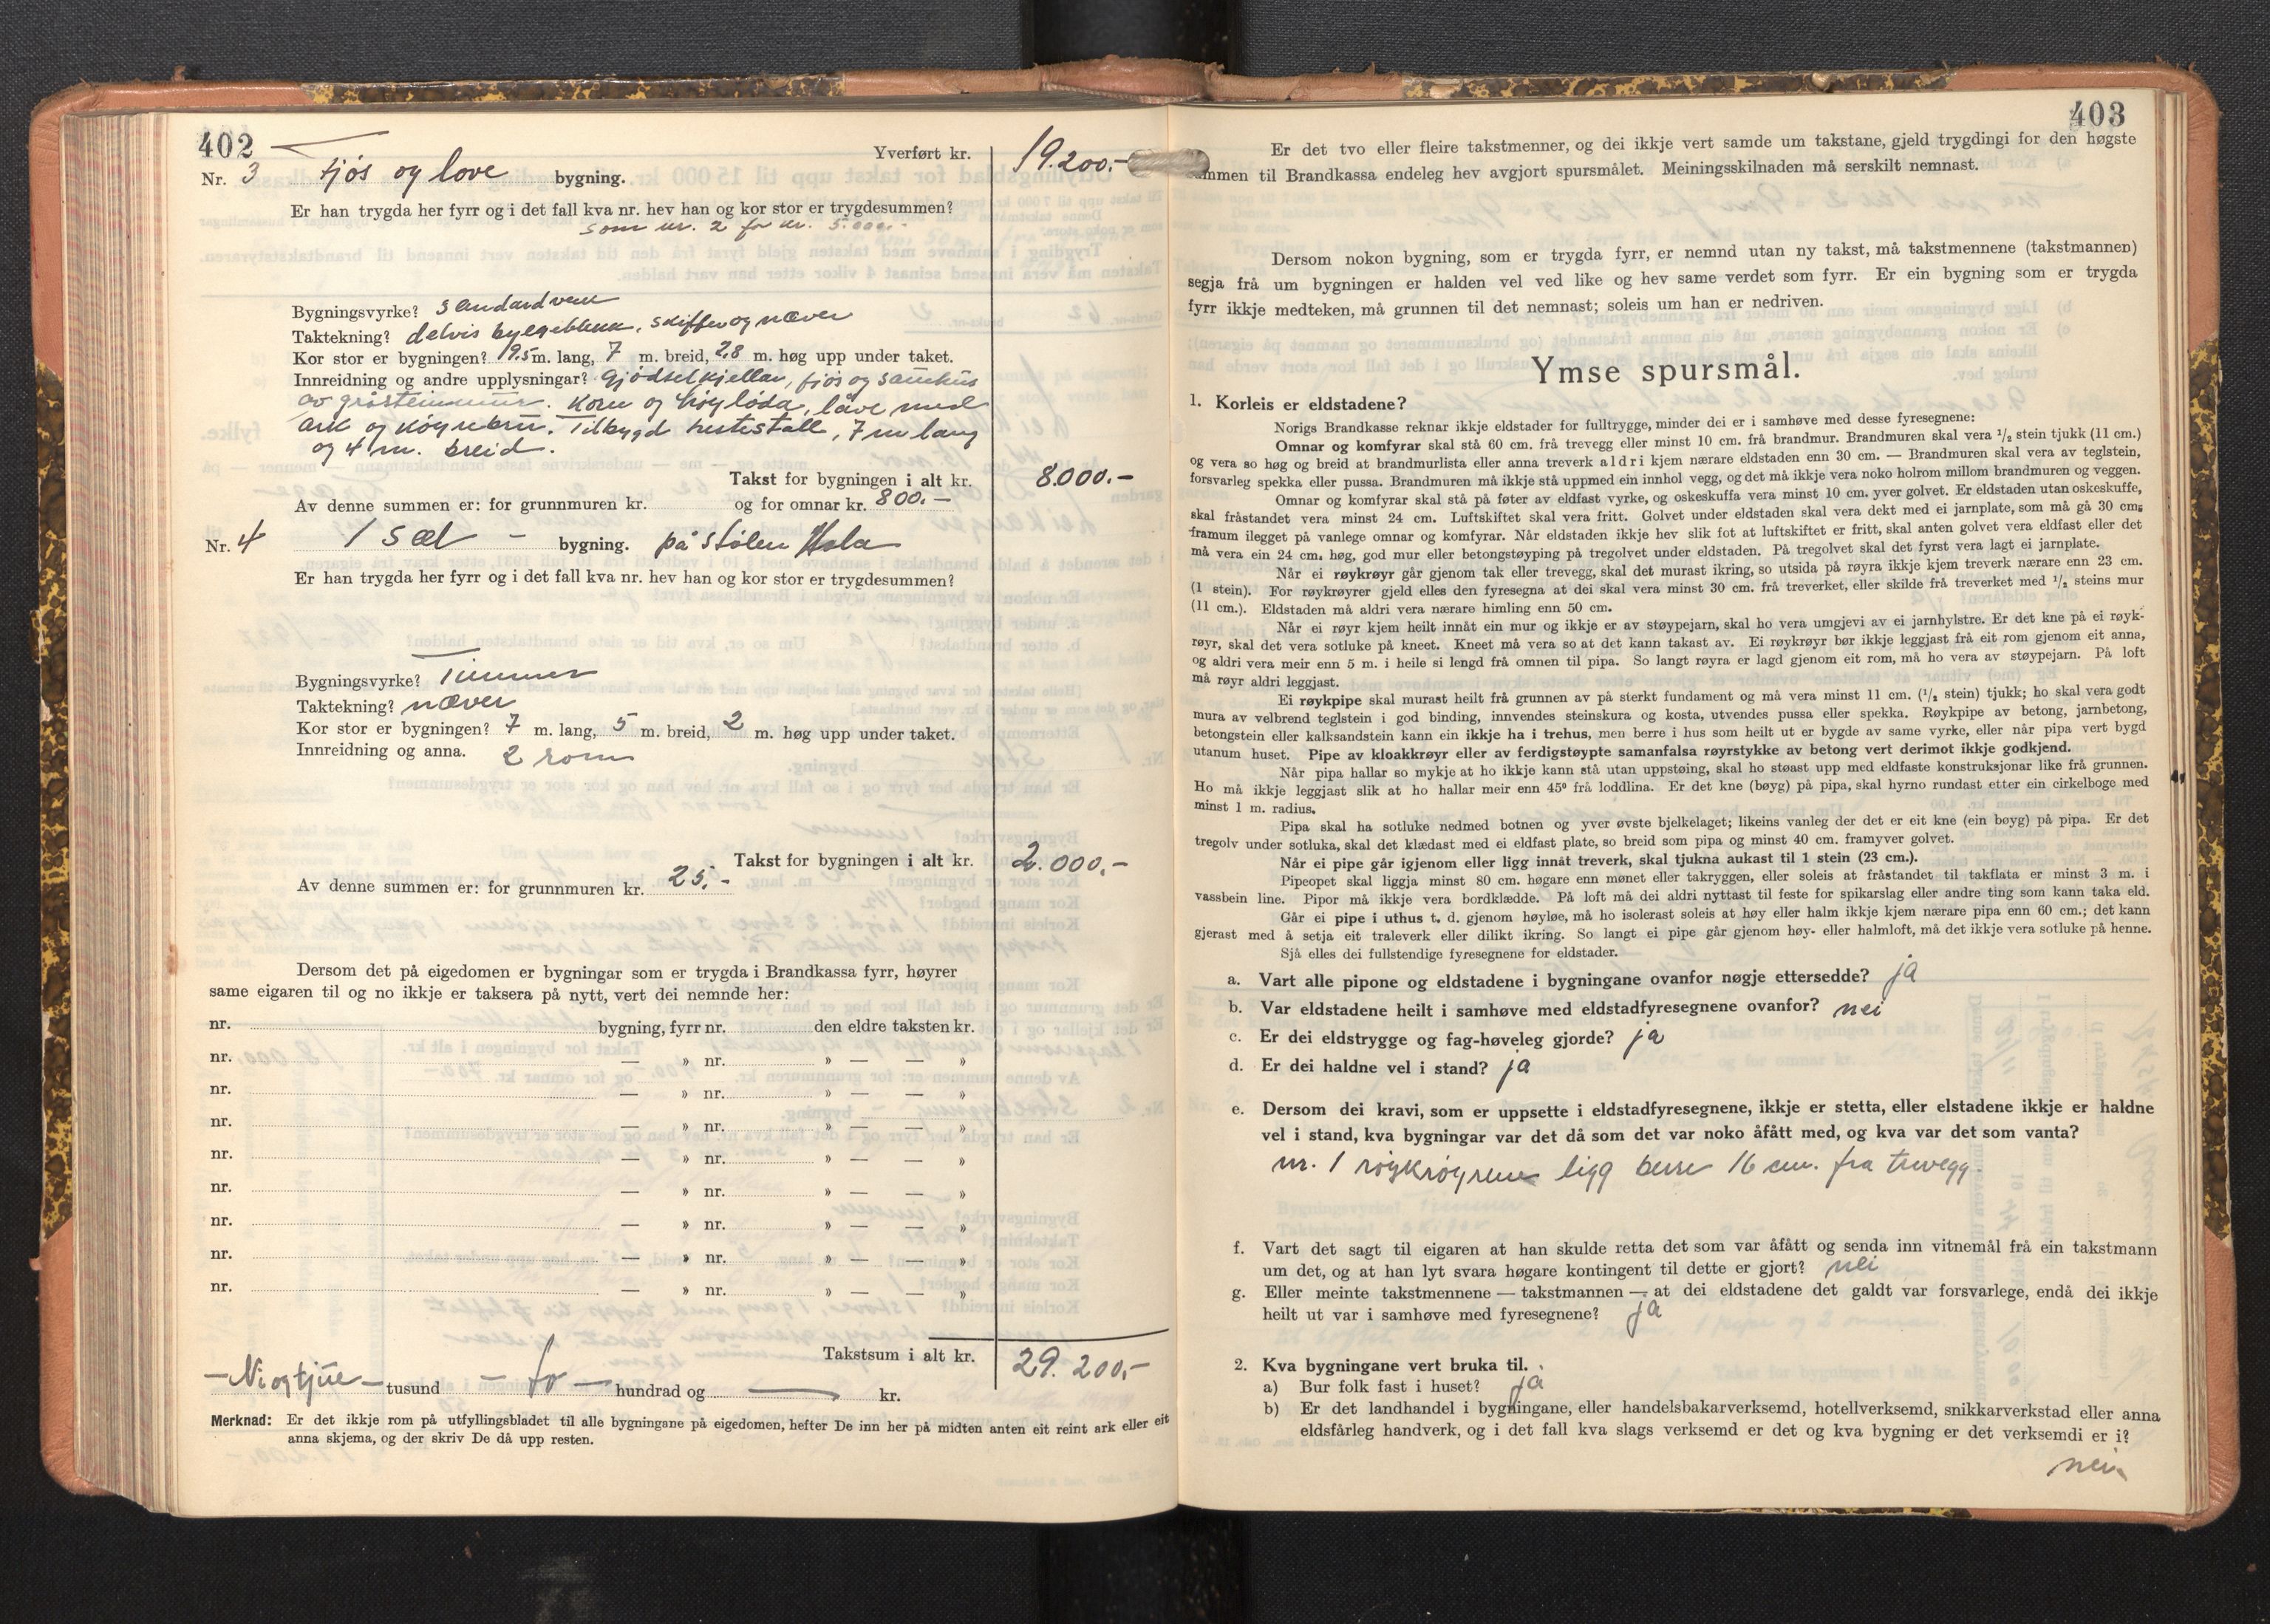 402
Yverført kr. 19.200,-
Nr. 3 Fjøs og løve bygning.
Er han trygda her fyrr og i det fall kva nr. hev han og kor stor er trygdesummen?
som nr. 2 for kr. 5.000,-
Bygningsvyrke?
Taktekning? delvis bylgjeblekk, skiffer og næver
Kor stor er bygningen? 19.5 m. lang, 7 m. breid, 2,8 m. høg upp under taket.
Innreidning og andre upplysningar? Gjødselkjellar, fjøs og sauehus
av gråsteinmur. Korn og høyløda, låve med
ark og køyrebru. Tilbygd hestestall, 7 m lang
og 4 m. breid.
Takst for bygningen i alt kr. 8.000.-
Av denne summen er: for grunnmuren kr. og for omnar kr. 800.-
Nr. 4 1 Sæl - bygning. på stølen Hola
Er han trygda her fyrr og i det fall kva nr. hev han og kor stor er trygdesummen?
Bygningsvyrke? Timmer
Taktekning? næver
Kor stor er bygningen? 7 m. lang, 5 m. breid, 2 m. høg upp under taket.
Innreidning og anna. 2 rom
Takst for bygningen i alt kr. 2.000,-
Av denne summen er: for grunnmuren kr. 25,-
Dersom det på eigedomen er bygningar som er trygda i Brandkassa fyrr, høyrer
same eigaren til og no ikkje er taksera på nytt, vert dei nemnde her:
nr. bygning, fyrr nr. den eldre taksten kr.
nr. — » nr. » — — »
nr. — » nr. » — — »
nr. — » nr. » — — »
nr. — » nr. » — — »
nr. — » nr. » — — »
nr. — » nr. » — — »
nr. — » nr. » — — »
nr. — » nr. » — — »
Takstsum i alt kr. 29.200,-
- Niogtjue - tusund - to - hundrad og — kr.
Merknad: Er det ikkje rom på utfyllingsbladet til alle bygningane på eigedomen, hefter De inn her på midten anten eit reint ark eller eit
anna skjema, og der skriv De då upp resten.
403
Er det tvo eller fleire takstmenner, og dei ikkje vert samde um takstane, gjeld trygdingi for den høgste
summen til Brandkassa endeleg hev avgjort spursmålet. Meiningsskilnaden må serskilt nemnast.
Dersom nokon bygning, som er trygda fyrr, er nemnd utan ny takst, må takstmennene (takstmannen)
segja frå um bygningen er halden vel ved like og hev same verdet som fyrr. Er ein bygning som er trygda
fyrr ikkje medteken, må grunnen til det nemnast; soleis um han er nedriven.
Ymse spursmål.
1. Korleis er eldstadene?
Norigs Brandkasse reknar ikkje eldstader for fulltrygge, minder dei er i samhøve med desse fyresegnene:
Omnar og komfyrar skal stå 60 cm. frå trevegg eller minst 10 cm. frå brandmur. Brandmuren skal vera 1/2 stein tjukk (11 cm.)
og vera so høg og breid at brandmurlista eller anna treverk aldri kjem nærare eldstaden enn 30 cm. — Brandmuren skal vera av teglstein,
forsvarleg spekka eller pussa. Brandmuren må ikkje stå uppmed ein innhol vegg, og det må ikkje vera noko holrom millom brandmuren og veggen.
Omnar og komfyrar skal stå på føter av eldfast vyrke, og oskeskuffa vera minst 10 cm. yver golvet. Er eldstaden utan oskeskuffe,
skal fråstandet vera minst 24 cm. Luftskiftet skal vera fritt. Golvet under eldstaden skal vera dekt med ei jarnplate, som må gå 30 cm.
framum ilegget på vanlege omnar og komfyrar. Når eldstaden ikkje hev slik fot at luftskiftet er fritt, skal anten golvet vera eldfast eller det
må vera ein 24 cm. høg, god mur eller betongstøyping på tregolvet under eldstaden. På tregolvet skal det fyrst vera lagt ei jarnplate.
Når ei røykrøyr går gjenom tak eller trevegg, skal det murast ikring, so utsida på røyra ikkje kjem treverk nærare enn 23 cm.
(1 stein). For røykrøyrer gjeld elles den fyresegna at dei skal vera minst 30 cm. frå treverket, eller skilde frå treverket med 1/2 steins mur
(11 cm.). Eldstaden må aldri vera nærare himling enn 50 cm.
Når ei røyr kjem heilt innåt ein mur og ikkje er av støypejarn, skal ho vera umgjevi av ei jarnhylstre. Er det kne på ei røyk-
røyr, skal det vera sotluke på kneet. Kneet må vera so at det kann takast av. Ei røykrøyr bør ikkje leggjast frå eit rom gjenom eit anna,
og aldri vera meir enn 5 m. i heile si lengd frå omnen til pipa. So langt røyra er lagd gjenom eit rom, må ho vera av støypejarn. På loft
må røyr aldri leggjast.
Ei røykpipe skal murast heilt frå grunnen av på sterkt fundament og må vera minst 11 cm. (1/2 stein) tjukk; ho skal vera godt
mura av velbrend teglstein i god binding, innvendes steinskura og kosta, utvendes pussa eller spekka. Røykpipe av betong, jarnbetong,
betongstein eller kalksandstein kann ein ikkje ha i trehus, men berre i hus som heilt ut er bygde av same vyrke, eller når pipa vert bygd
utanum huset. Pipe av kloakkrøyr eller av ferdigstøypte samanfalsa røyrstykke av betong vert derimot ikkje godkjend.
Når pipa hallar so mykje at ho ikkje kann stå utan uppstøing, skal ho støast upp med eldfaste konstruksjonar like frå grunnen.
Ho må ikkje leggjast slik at ho hallar meir enn 45º frå loddlina. Er det kne (bøyg) på pipa, skal hyrno rundast etter ein cirkelboge med
minst 1 m. radius.
Pipa skal ha sotluke nedmed botnen og yver øvste bjelkelaget; likeins vanleg der det er eit kne (ein bøyg) på pipa. Er det
tregolv under sotluka, skal det klædast med ei eldfast plate, so breid som pipa og minst 40 cm. framyver golvet.
Når ei pipe går igjenom eller ligg innåt treverk, skal tjukna aukast til 1 stein (23 cm.).
Pipeopet skal liggja minst 80 cm. høgare enn mønet eller takryggen, eller soleis at fråstandet til takflata er minst 3 m. i
vassbein line. Pipor må ikkje vera bordklædde. På loft må dei aldri nyttast til feste for spikarslag eller andre ting som kann taka eld.
Går ei pipe i uthus t. d. gjenom høyløe, må ho isolerast soleis at høy eller halm ikkje kjem nærare pipa enn 60 cm.; det kann
gjerast med å setja eit traleverk eller dilikt ikring. So langt ei pipe går gjenom høy- eller halmloft, må det ikkje vera sotluke på henne.
Sjå elles dei fullstendige fyresegnene for eldstader.
a. Vart alle pipone og eldstadene i bygningane ovanfor nøgje ettersedde? ja
b. Var eldstadene heilt i samhøve med eldstadfyresegnene ovanfor? nei
c. Er dei eldstrygge og fag-høveleg gjorde? ja
d. Er dei haldne vel i stand? ja
e. Dersom dei kravi, som er uppsette i eldstadfyresegnene, ikkje er stetta, eller elstadene ikkje er haldne
vel i stand, kva bygningar var det då som det var noko åfått med, og kva var det som vanta?
nr. 1 røykrøyrene ligg berre 16 cm. fra trevegg.
f. Vart det sagt til eigaren at han skulde retta det som var åfått og senda inn vitnemål frå ein takstmann
um det, og at han lyt svara høgare kontingent til dette er gjort? nei
g. Eller meinte takstmennene — takstmannen — at dei eldstadene det galdt var forsvarlege, endå dei ikkje
heilt ut var i samhøve med fyresegnene? ja
2. Kva bygningane vert bruka til.
a) Bur folk fast i huset? ja
b) Er det landhandel i bygningane, eller handelsbakarverksemd, hotellverksemd, snikkarverkstad eller anna
eldsfårleg handverk, og i det fall kva slags verksemd er det og kva bygning er det verksemdi er i?
nei